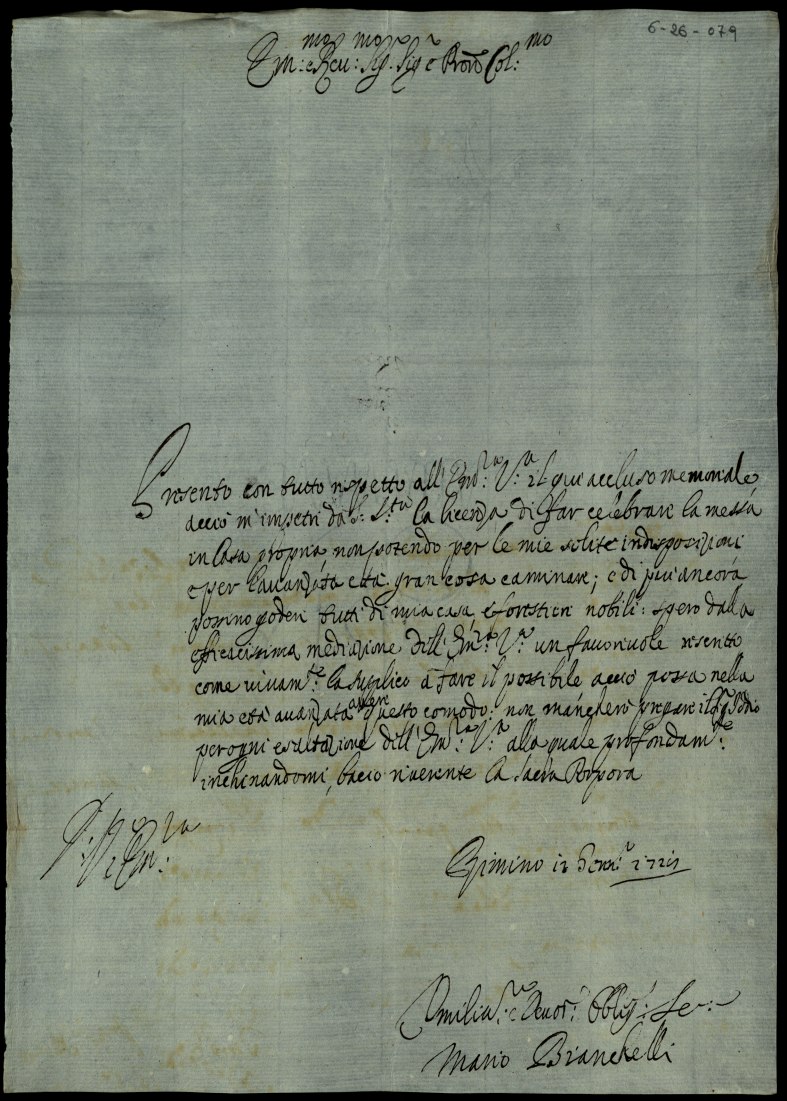 6-26-079
Em:mo e Reu:mo Sig.r Sig.r e Pron Col:mo
Presento con tutto rispetto all' Em:za V:a il qui accluso memoriale
acciò m'impetri da S: S:tà la licenza di far celebrare la messa
in Casa propria non potendo per le mie solite indisposizioni
e per l'auanzata età gran cosa caminare; e di più ancora
possino godere tutti di mia casa, e forestieri nobili: spero dalla
efficacissima mediazione dell' Em:za V:a un fauoreuole rescritto
come viuam:te la supplico à fare il possibile acciò possa nella
mia età auanzata auere questo comodo: non mancherò pregare il Sig. Iddio
per ogni esaltazione dell' Em:za V:a alla quale profondam:te
inchinandomi, bacio riuerente la Sacra Porpora
D: V: Em:za
Rimino 12 Genn:o
Vmiliss:o e Deuot:o Obblig: Ser:
Mario Bianchelli